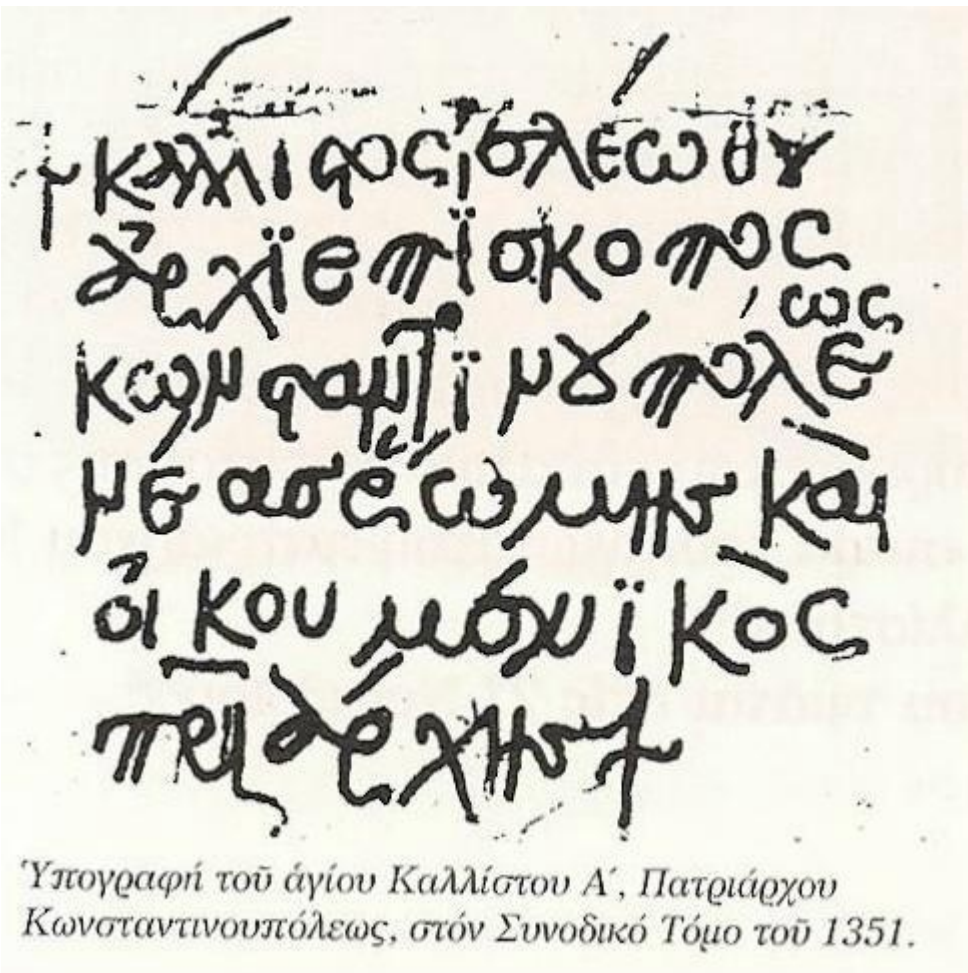 † κάλλιϛος ἐλέω θῦ
ἀρχϊεπΐσκοπος
κωνϛαντϊνουπόλεως
νέας ῥώμης καὶ
οἰκουμενϊκὸς
πριάρχης †
Ὑπογραφή τοῦ ἁγίου Καλλίστου Α΄, Πατριάρχου
Κωνσταντινουπόλεως, στόν Συνοδικό Τόμο τοῦ 1351.